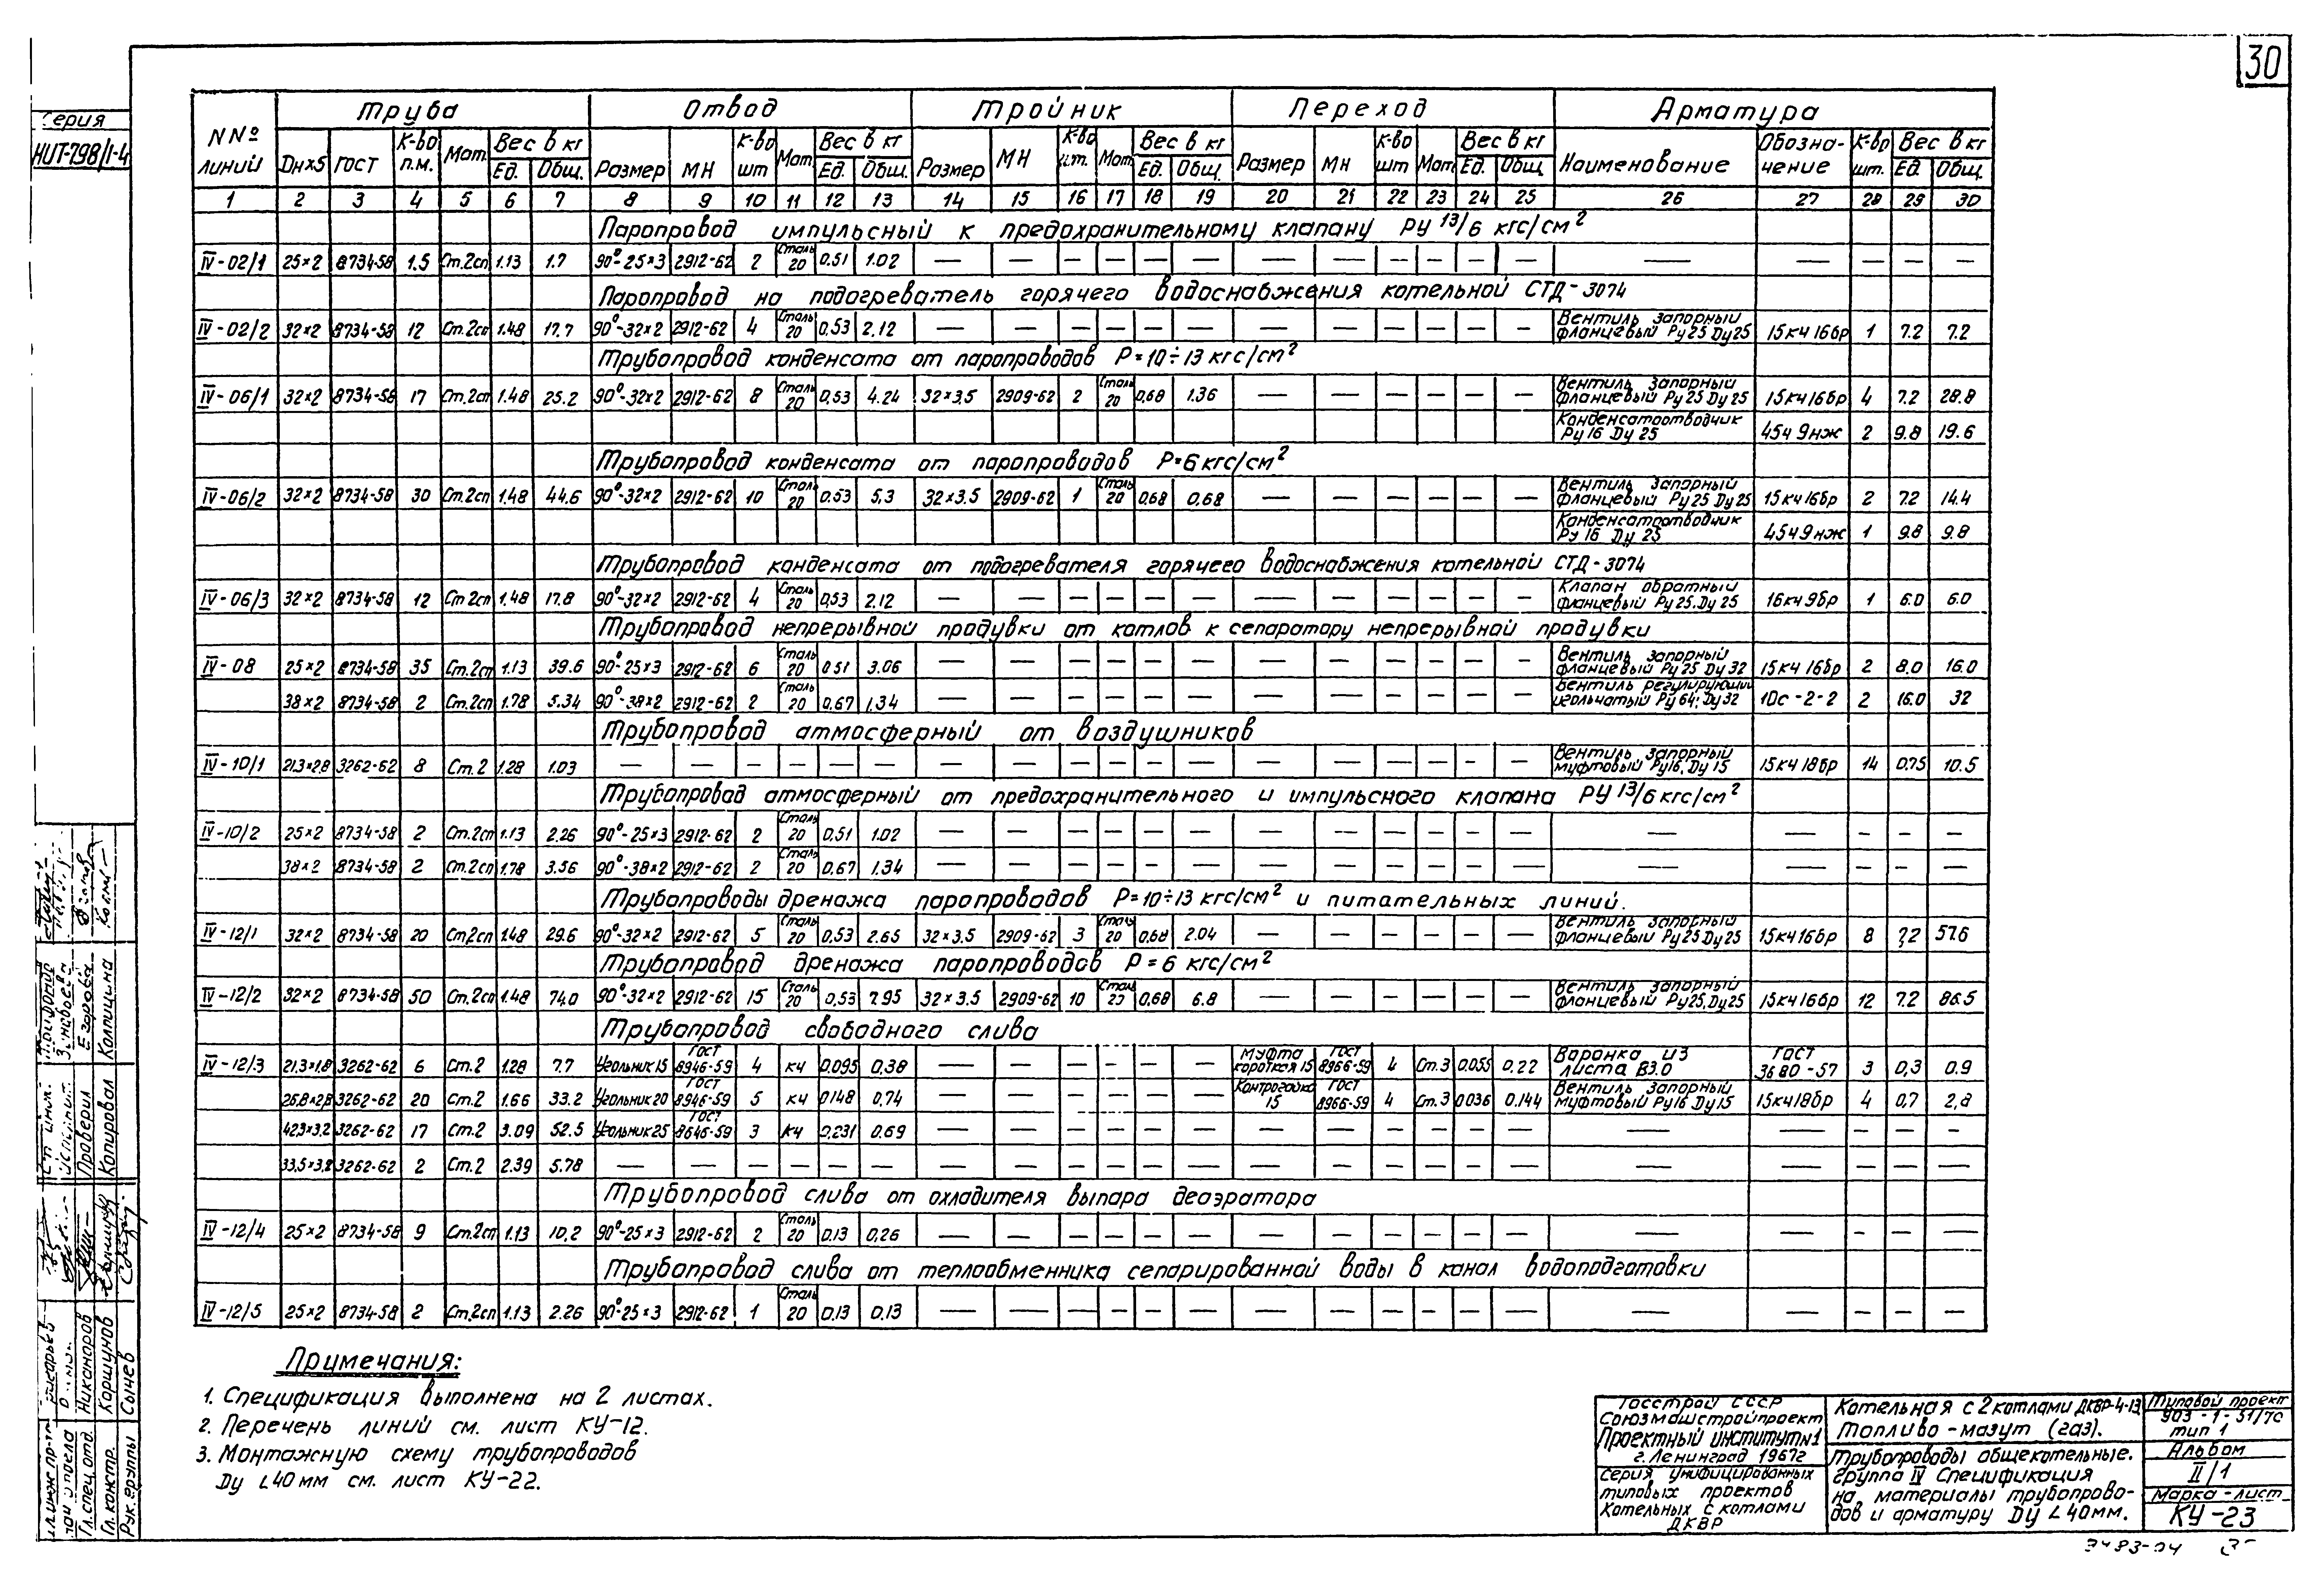 30
Серия
НИТ-798/I-4
NNº линий | Труба | Отвод | Тройник | Переход | Арматура
Dн×S | ГОСТ | К-во п.м. | Мат. | Вес в кг Ед. | Общ. | Размер | МН | К-во шт | Мат | Вес в кг Ед. | Общ. | Размер | МН | К-во шт. | Мат | Вес в кг Ед. | Общ. | Размер | МН | К-во шт | Мат | Вес в кг Ед. | Общ | Наименование | Обозначение | К-во шт. | Вес в кг Ед. | Общ.
1 | 2 | 3 | 4 | 5 | 6 | 7 | 8 | 9 | 10 | 11 | 12 | 13 | 14 | 15 | 16 | 17 | 18 | 19 | 20 | 21 | 22 | 23 | 24 | 25 | 26 | 27 | 28 | 29 | 30
Паропровод импульсный к предохранительному клапану РУ 13/6 кгс/см²
IV-02/1 | 25×2 | 8734-58 | 1.5 | Ст.2сп | 1.13 | 1.7 | 90°-25×3 | 2912-62 | 2 | Сталь 20 | 0.51 | 1.02 | — | — | — | — | — | — | — | — | — | — | — | — | — | — | — | — | —
Паропровод на подогреватель горячего водоснабжения котельной СТД-3074
IV-02/2 | 32×2 | 8734-58 | 12 | Ст.2сп | 1.48 | 17.7 | 90°-32×2 | 2912-62 | 4 | Сталь 20 | 0.53 | 2.12 | — | — | — | — | — | — | — | — | — | — | — | — | Вентиль запорный фланцевый Ру25 Dу25 | 15кч16бр | 1 | 7.2 | 7.2
Трубопровод конденсата от паропроводов Р=10÷13 кгс/см²
IV-06/1 | 32×2 | 8734-58 | 17 | Ст.2сп | 1.48 | 25.2 | 90°-32×2 | 2912-62 | 8 | Сталь 20 | 0,53 | 4.24 | 32×3.5 | 2909-62 | 2 | Сталь 20 | 0,68 | 1.36 | — | — | — | — | — | — | Вентиль запорный фланцевый Ру25 Dу25 | 15кч16бр | 4 | 7.2 | 28.8
Конденсатоотводчик Ру16 Dу 25 | 45ч9нж | 2 | 9.8 | 19.6
Трубопровод конденсата от паропроводов Р=6 кгс/см²
IV-06/2 | 32×2 | 8734-58 | 30 | Ст.2сп | 1.48 | 44.6 | 90°-32×2 | 2912-62 | 10 | Сталь 20 | 0.53 | 5.3 | 32×3.5 | 2909-62 | 1 | Сталь 20 | 0.68 | 0.68 | — | — | — | — | — | — | Вентиль запорный фланцевый Ру25 Dу25 | 15кч16бр | 2 | 7.2 | 14.4
Конденсатоотводчик Ру16 Dу 25 | 45ч9нж | 1 | 9.8 | 9.8
Трубопровод конденсата от подогревателя горячего водоснабжения котельной СТД-3074
IV-06/3 | 32×2 | 8734-58 | 12 | Ст2сп | 1.48 | 17.8 | 90°-32×2 | 2912-62 | 4 | Сталь 20 | 0,53 | 2.12 | — | — | — | — | — | — | — | — | — | — | — | — | Клапан обратный фланцевый Ру25. Dу 25 | 16кч9бр | 1 | 6.0 | 6.0
Трубопровод непрерывной продувки от котлов к сепаратору непрерывной продувки
IV-08 | 25×2 | 8734-58 | 35 | Ст.2сп | 1.13 | 39.6 | 90°-25×3 | 2912-62 | 6 | Сталь 20 | 0.51 | 3.06 | — | — | — | — | — | — | — | — | — | — | — | — | Вентиль запорный фланцевый Ру25 Dу 32 | 15кч16бр | 2 | 8.0 | 16.0
38×2 | 8734-58 | 2 | Ст.2сп | 1.78 | 5.34 | 90°-38×2 | 2912-62 | 2 | Сталь 20 | 0,67 | 1.34 | — | — | — | — | — | — | — | — | — | — | — | — | Вентиль регулирующий игольчатый Ру64; Dу32 | 10с-2-2 | 2 | 16.0 | 32
Трубопровод атмосферный от воздушников
IV-10/1 | 21.3×2.8 | 3262-62 | 8 | Ст.2 | 1.28 | 1.03 | — | — | — | — | — | — | — | — | — | — | — | — | — | — | — | — | — | — | Вентиль запорный муфтовый Ру16, Dу 15 | 15кч18бр | 14 | 0.75 | 10.5
Трубопровод атмосферный от предохранительного и импульсного клапана РУ 13/6 кгс/см²
IV-10/2 | 25×2 | 8734-58 | 2 | Ст.2сп | 1.13 | 2.26 | 90°-25×3 | 2912-62 | 2 | Сталь 20 | 0,51 | 1.02 | — | — | — | — | — | — | — | — | — | — | — | — | — | — | — | — | —
38×2 | 8734-58 | 2 | Ст.2сп | 1.78 | 3.56 | 90°-38×2 | 2912-62 | 2 | Сталь 20 | 0,67 | 1.34 | — | — | — | — | — | — | — | — | — | — | — | — | — | — | — | — | —
Трубопроводы дренажа паропроводов Р=10÷13 кгс/см² и питательных линий.
IV-12/1 | 32×2 | 8734-58 | 20 | Ст.2сп | 1.48 | 29.6 | 90°-32×2 | 2912-62 | 5 | Сталь 20 | 0,53 | 2.65 | 32×3.5 | 2909-62 | 3 | Сталь 20 | 0.68 | 2.04 | — | — | — | — | — | — | Вентиль запорный фланцевый Ру25 Dу25 | 15кч16бр | 8 | 7.2 | 57.6
Трубопровод дренажа паропроводов Р=6 кгс/см²
IV-12/2 | 32×2 | 8734-58 | 50 | Ст.2сп | 1.48 | 74.0 | 90°-32×2 | 2912-62 | 15 | Сталь 20 | 0,53 | 7.95 | 32×3.5 | 2909-62 | 10 | Сталь 20 | 0,68 | 6.8 | — | — | — | — | — | — | Вентиль запорный фланцевый Ру25, Dу25 | 15кч16бр | 12 | 7.2 | 86.5
Трубопровод свободного слива
IV-12/3 | 21,3×1,8 | 3262-62 | 6 | Ст.2 | 1.28 | 7.7 | Угольник 15 | ГОСТ 8946-59 | 4 | кч | 0,095 | 0,38 | — | — | — | — | — | — | Муфта короткая 15 | ГОСТ 8966-59 | 4 | Ст.3 | 0.055 | 0,22 | Воронка из листа В3.0 | ГОСТ 3680-57 | 3 | 0,3 | 0.9
26,8×2,8 | 3262-62 | 20 | Ст.2 | 1.66 | 33.2 | Угольник 20 | ГОСТ 8946-59 | 5 | кч | 0.148 | 0,74 | — | — | — | — | — | — | Контргайка 15 | ГОСТ 8966-59 | 4 | Ст.3 | 0.036 | 0.144 | Вентиль запорный муфтовый Ру16 Dу15 | 15кч18бр | 4 | 0,7 | 2,8
42,3×3,2 | 3262-62 | 17 | Ст.2 | 3.09 | 52.5 | Угольник 25 | ГОСТ 8646-59 | 3 | кч | 0,231 | 0.69 | — | — | — | — | — | — | — | — | — | — | — | — | — | — | — | — | —
33,5×3,2 | 3262-62 | 2 | Ст.2 | 2.39 | 5.78 | — | — | — | — | — | — | — | — | — | — | — | — | — | — | — | — | — | — | — | — | — | — | —
Трубопровод слива от охладителя выпара деаэратора
IV-12/4 | 25×2 | 8734-58 | 9 | Ст.2сп | 1.13 | 10,2 | 90°-25×3 | 2912-62 | 2 | Сталь 20 | 0.13 | 0,26 | — | — | — | — | — | — | — | — | — | — | — | — | — | — | — | — | —
Трубопровод слива от теплообменника сепарированной воды в канал водоподготовки
IV-12/5 | 25×2 | 8734-58 | 2 | Ст.2сп | 1.13 | 2.26 | 90°-25×3 | 2912-62 | 1 | Сталь 20 | 0.13 | 0.13 | — | — | — | — | — | — | — | — | — | — | — | — | — | — | — | — | —
Примечания:
1. Спецификация выполнена на 2 листах.
2. Перечень линий см. лист КУ-12.
3. Монтажную схему трубопроводов
Dу ∠40 мм см. лист КУ-22.
Госстрой СССР
Союзмашстройпроект
Проектный институт N1
г. Ленинград 1967г
Серия унифицированных
типовых проектов
котельных с котлами
ДКВР
Котельная с 2 котлами ДКВР-4-13
Топливо-мазут (газ).
Трубопроводы общекотельные.
Группа IV Спецификация
на материалы трубопрово-
дов и арматуру Dу ∠40мм.
Типовой проект
903-1-51/70
тип 1
Альбом
II/1
Марка-лист
КУ-23
Гл. спец. отд. Никаноров
Гл. констр. Коршунов
Рук. группы Сычев
Проверил Егорова
Копировал Колпицина